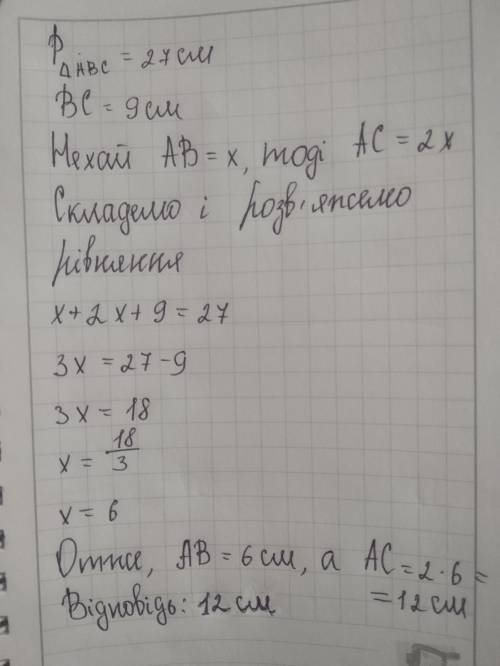 P ΔABC = 27 см
BC = 9 см
Нехай AB = x, тоді AC = 2x
Складемо і розв'яжемо
рівняння
x + 2x + 9 = 27
3x = 27 - 9
3x = 18
x = 18/3
x = 6
Отже, AB = 6 см, а AC = 2 · 6 =
= 12 см
Відповідь: 12 см